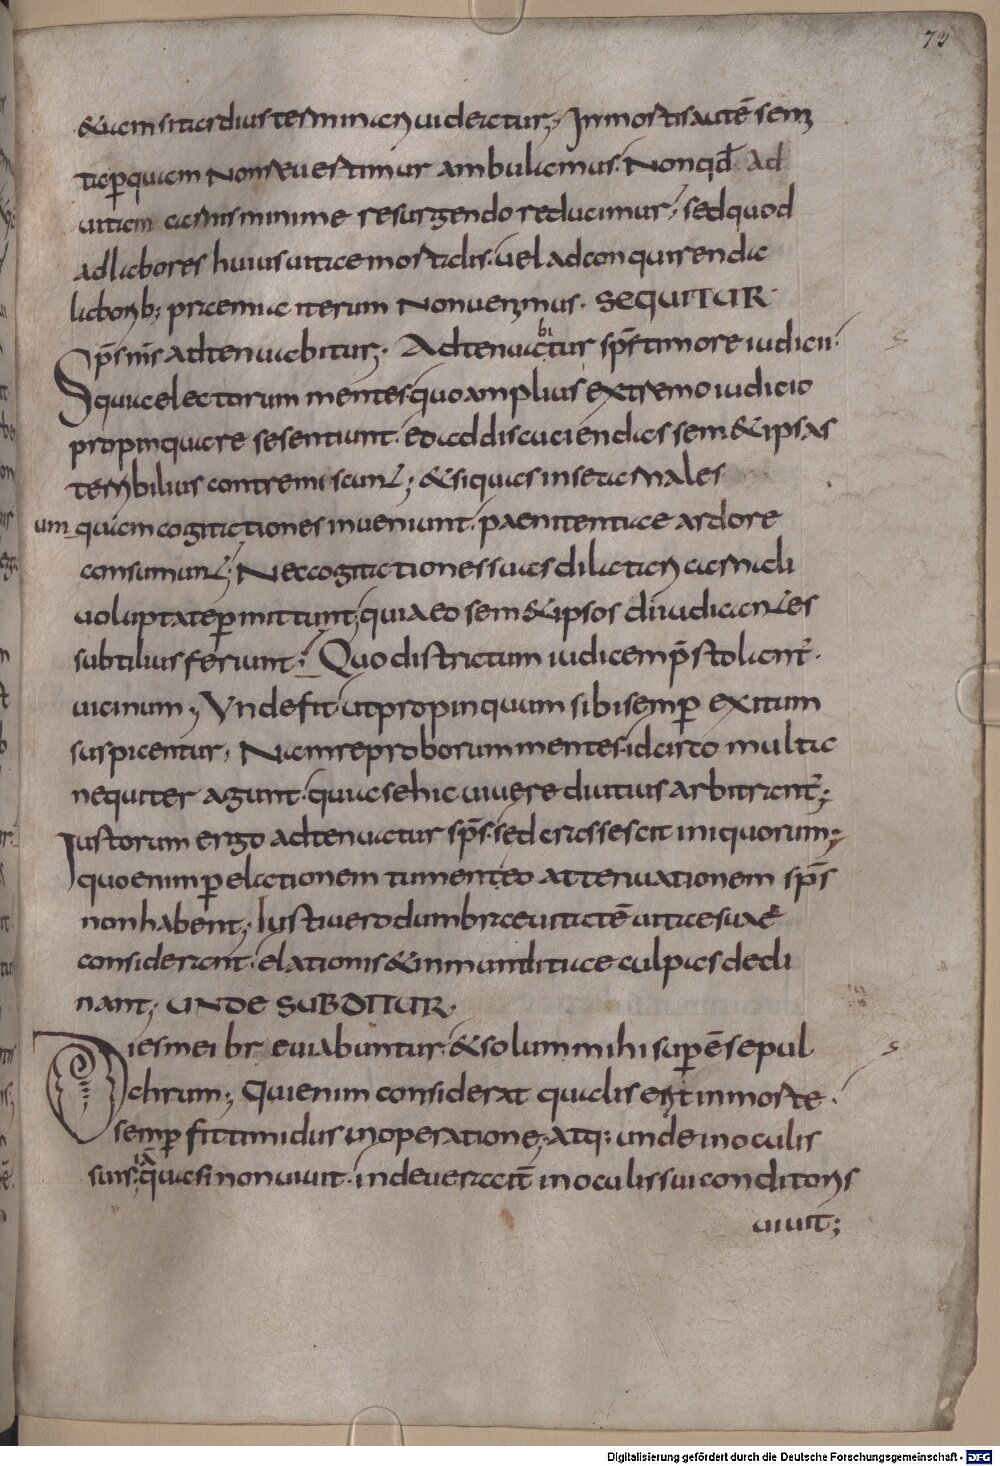 73
&iam si tardius terminari uideretur; In mortis autē semi
ta ꝑquam non reuertimur ambulamus. Non qđ ad
uitam carnis minime resurgendo reducimur, sed quod
ad labores huius uitae mortalis. uel ad conquirenda
laborib; praemia iterum non uenimus. SEQUITUR
Sp̄s m̄s adtenuabitur; Adtenuabitur sp̄s timore iudicii.
quia electorum mentes quo amplius extremo iudicio
propinquare se sentiunt. eo ad discutiendas sem&ipsas
terribilius contremiscunt; &si quas in se carnales
um quam cogitationes inueniunt. paenitentiae ardore
consumunt; Nec cogitationes suas dilatari carnali
uoluptate ꝑmittunt; quia eo sem&ipsos diiudicantes
subtilius feriunt; Quo districtum iudicem p̄stolant̄.
uicinum; Unde fit ut propinquum sibi semꝑ exitum
suspicentur, Nam reproborum mentes idcirco multa
nequiter agunt. quia se hic uiuere diutius arbitrant̄;
Iustorum ergo adtenuatur sp̄s. sed crassescit iniquorum;
quo enim ꝑ elationem tument eo attenuationem sp̄s
non habent; Iusti uero dum breuitatē uitae suae
considerant. elationis &inmunditiae culpas decli
nant; UNDE SUBDITUR.
Dies mei breuiabuntur. &solum mihi supēst sepul
chrum; Qui enim considerat qualis erit in morte.
semꝑ fit timidus in operatione. atq; unde in oculis
suis iā quasi non uiuit. inde ueraciť in oculis sui conditoris
uiuit;
Digitalisierung gefördert durch die Deutsche Forschungsgemeinschaft - DFG